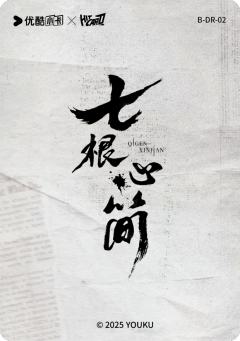 优酷 × B-DR-02
七根心简
QIGEN
XINJIAN
© 2025 YOUKU